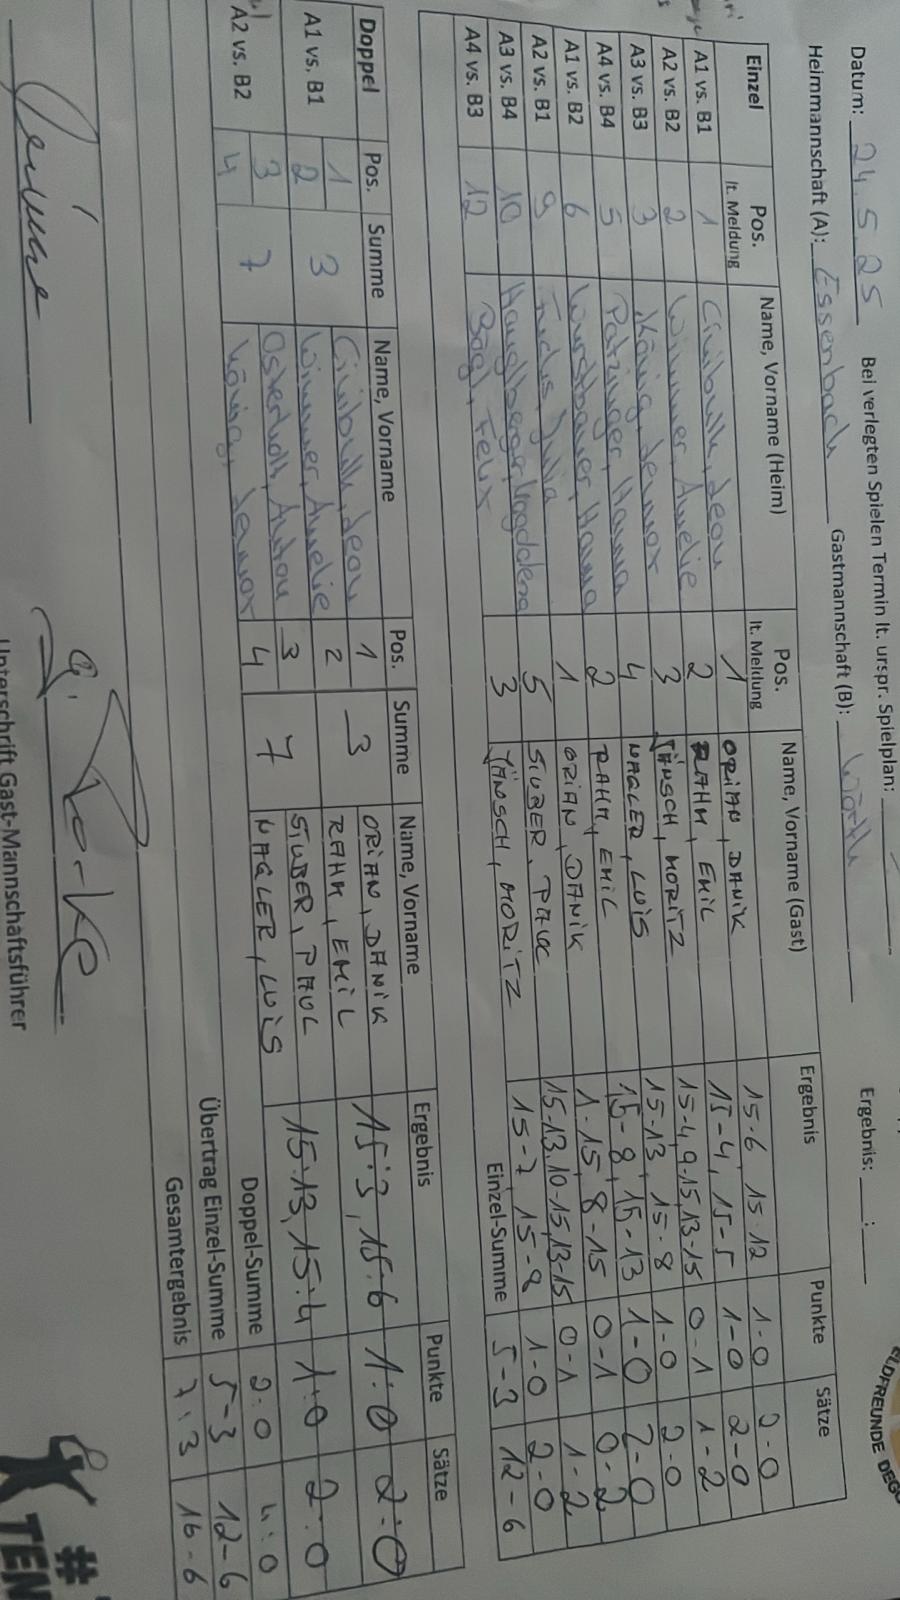 Datum: 24.5.25 Bei verlegten Spielen Termin lt. urspr. Spielplan: Ergebnis: :
Heimmannschaft (A): Essenbach Gastmannschaft (B): Wörth
Einzel Pos. lt. Meldung Name, Vorname (Heim) Pos. lt. Meldung Name, Vorname (Gast) Ergebnis Punkte Sätze
A1 vs. B1 1 Leon 1 ORIAN, DANIK 15-6 15-12 1-0 2-0
A2 vs. B2 2 Wimmer, Amelie 2 RAHM, EMIL 15-4, 15-5 1-0 2-0
A3 vs. B3 3 König, 3 JÄNSCH, MORITZ 15-4, 9-15, 13-15 0-1 1-2
A4 vs. B4 5 Patzinger, Hanna 4 NAGLER, LUIS 15-13, 15-8 1-0 2-0
A1 vs. B2 6 Hanna 2 RAHM, EMIL 15-8, 15-13 1-0 2-0
A2 vs. B1 9 Julia 1 ORIAN, DANIK 1-15, 8-15 0-1 0-2
A3 vs. B4 10 Magdalena 5 STUBER, PAUL 15-13, 10-15, 13-15 0-1 1-2
A4 vs. B3 12 Felix 3 JÄNSCH, MORITZ 15-7, 15-8 1-0 2-0
Einzel-Summe 5-3 12-6
Doppel Pos. Summe Name, Vorname Pos. Summe Name, Vorname Ergebnis Punkte Sätze
A1 vs. B1 1 3 Leon 1 3 ORIAN, DANIK 15:3, 15:6 1:0 2:0
2 Wimmer, Amelie 2 RAHM, EMIL
A2 vs. B2 3 7 Anton 3 7 STUBER, PAUL 15:13, 15:4 1:0 2:0
4 König, 4 NAGLER, LUIS
Doppel-Summe 2:0 4:0
Übertrag Einzel-Summe 5-3 12-6
Gesamtergebnis 7:3 16-6
Unterschrift Gast-Mannschaftsführer
#
TEN